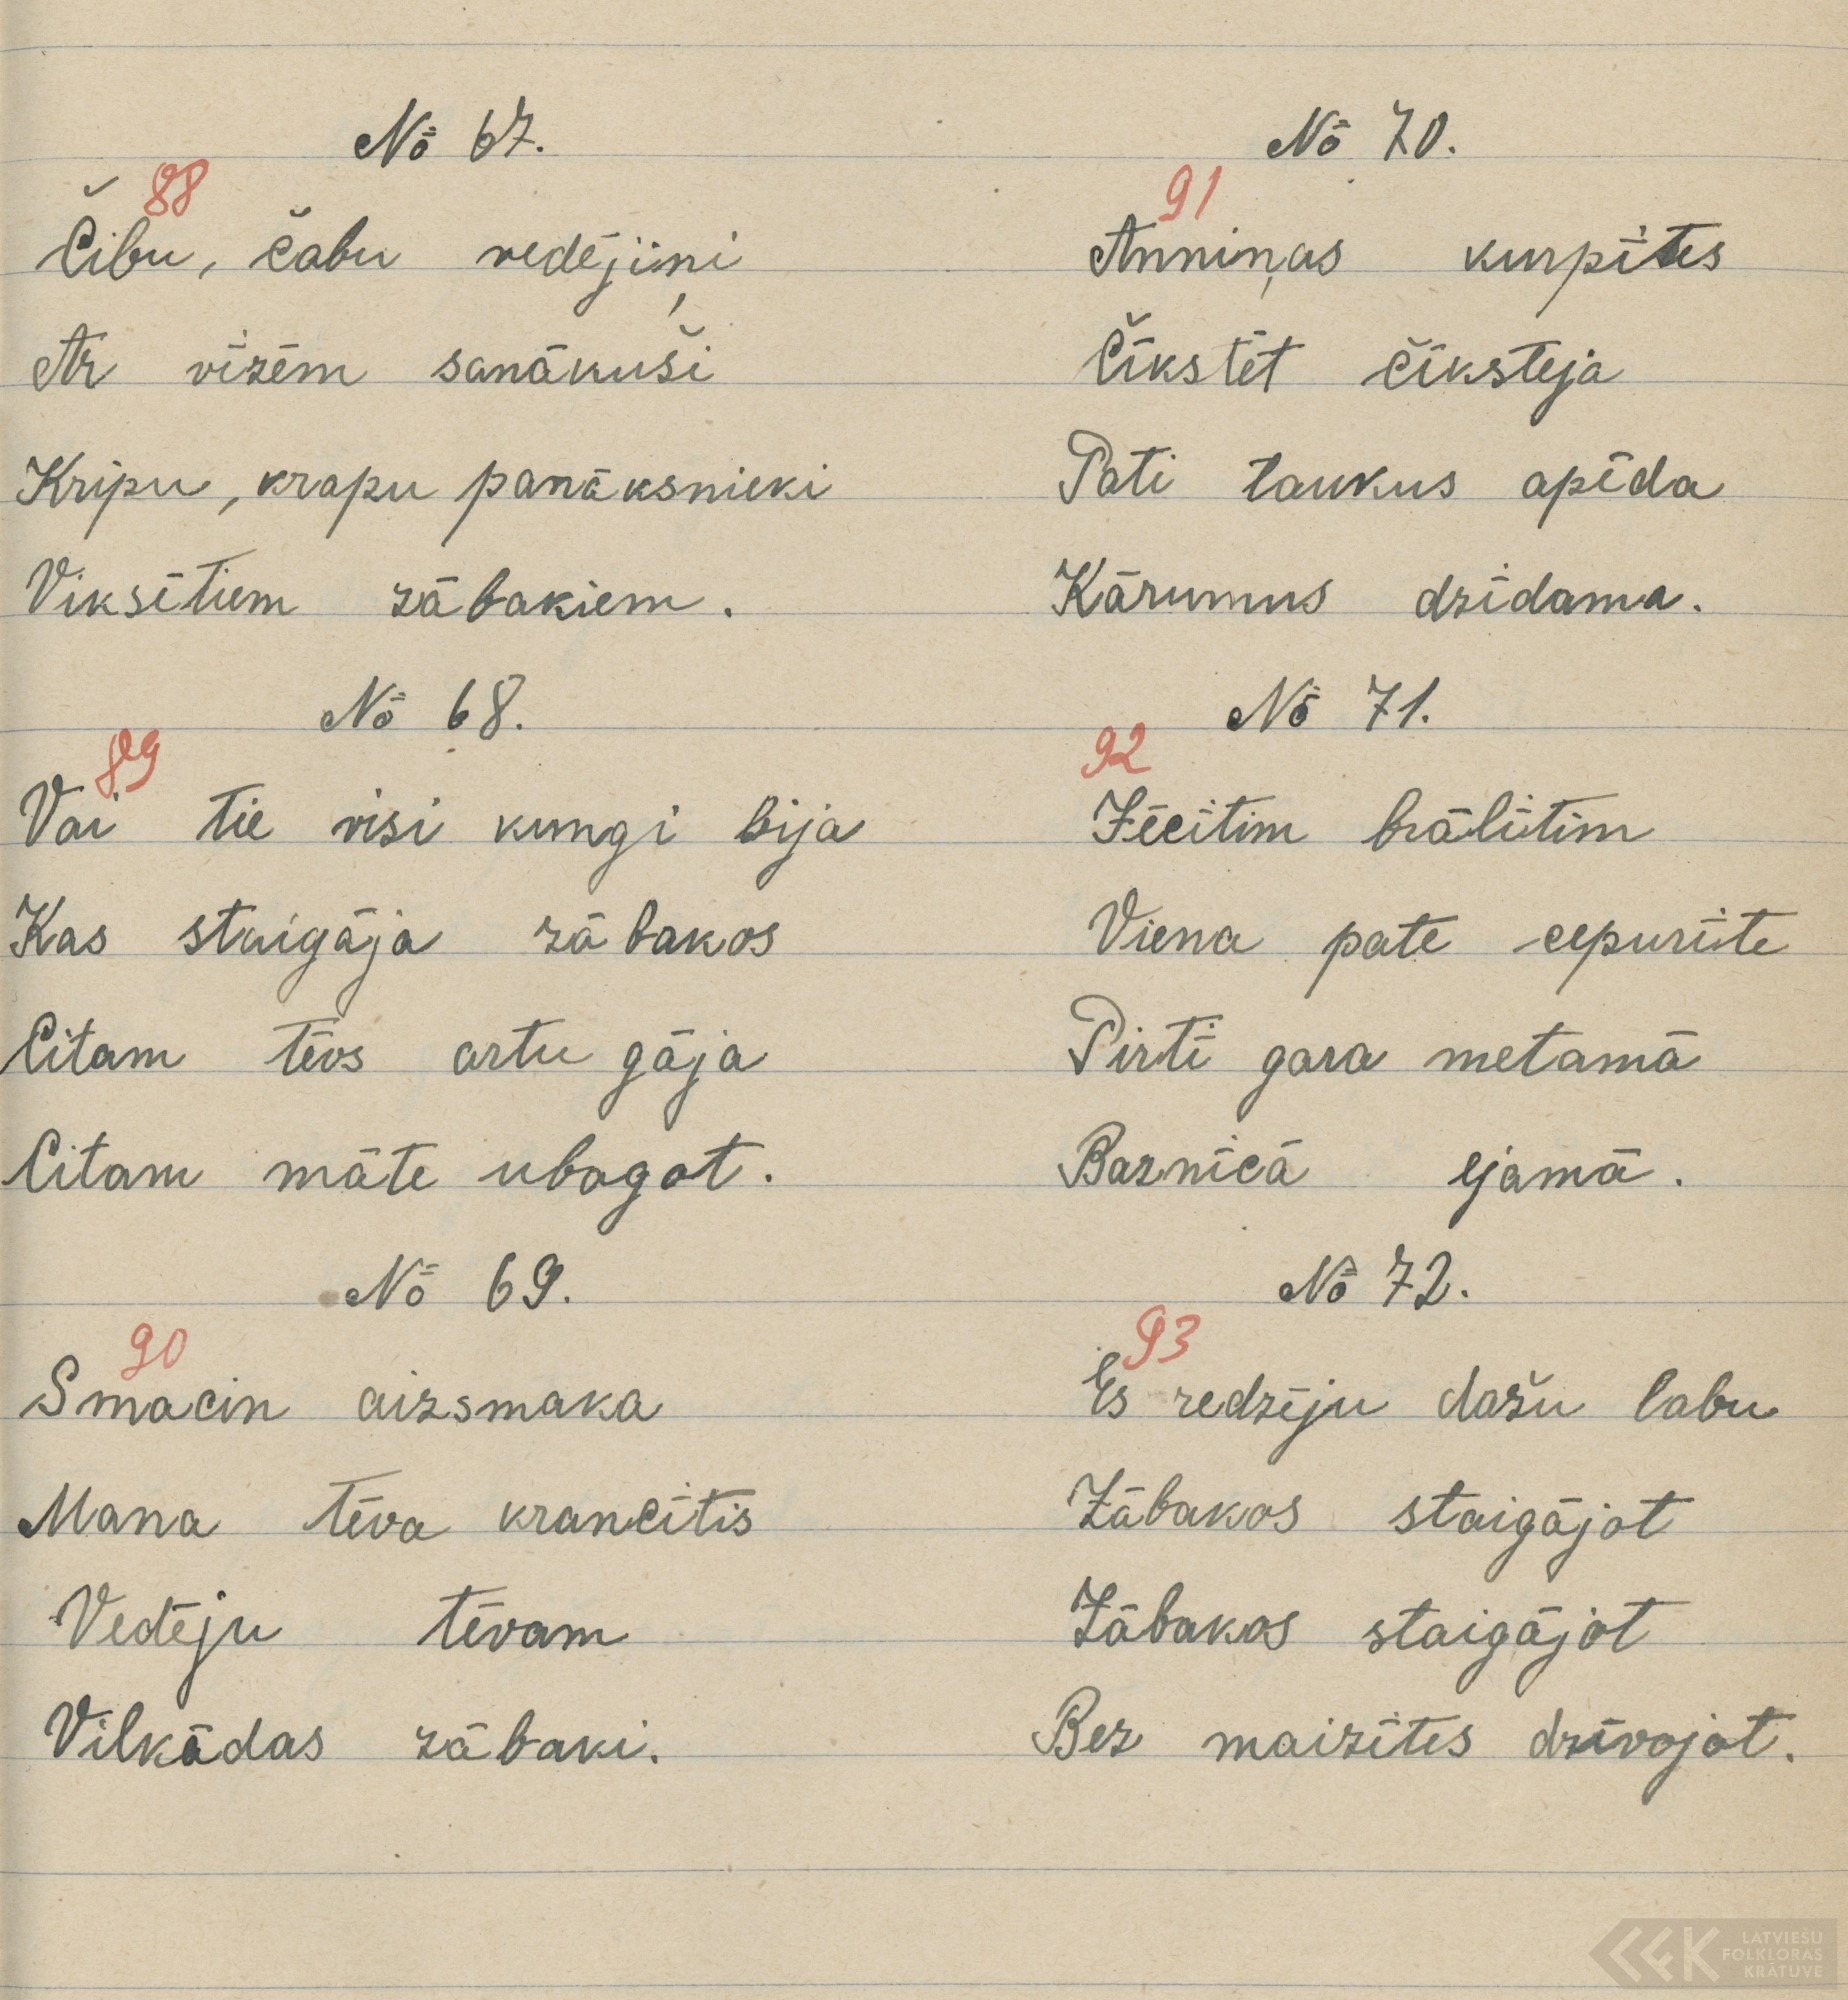 No 67.
88
Čibu, čabu vedējiņi
Ar vīzēm sanākuši
Kripu, krapu panāksnieki
Viksētiem zābakiem.
No 68.
89
Vai tie visi kungi bija
Kas staigāja zābakos
Citam tēvs artu gāja
Citam māte ubagot.
No 69.
90
Smacin aizsmaka
Mana tēva krancītis
Vedēju tēvam
Vilkādas zābaki.
No 70.
91
Anniņas kurpītes
Čīkstēt čīkstēja
Pati taukus apēda
Kārumus dzīdama.
No 71.
92
Zēcītim brālītim
Viena pate cepurīte
Pirtī gara metamā
Baznīcā ejamā.
No 72.
93
Es redzēju dažu labu
Zābakos staigājot
Zābakos staigājot
Bez maizītes dzīvojot.
LATVIEŠU
FOLKLORAS
KRĀTUVE